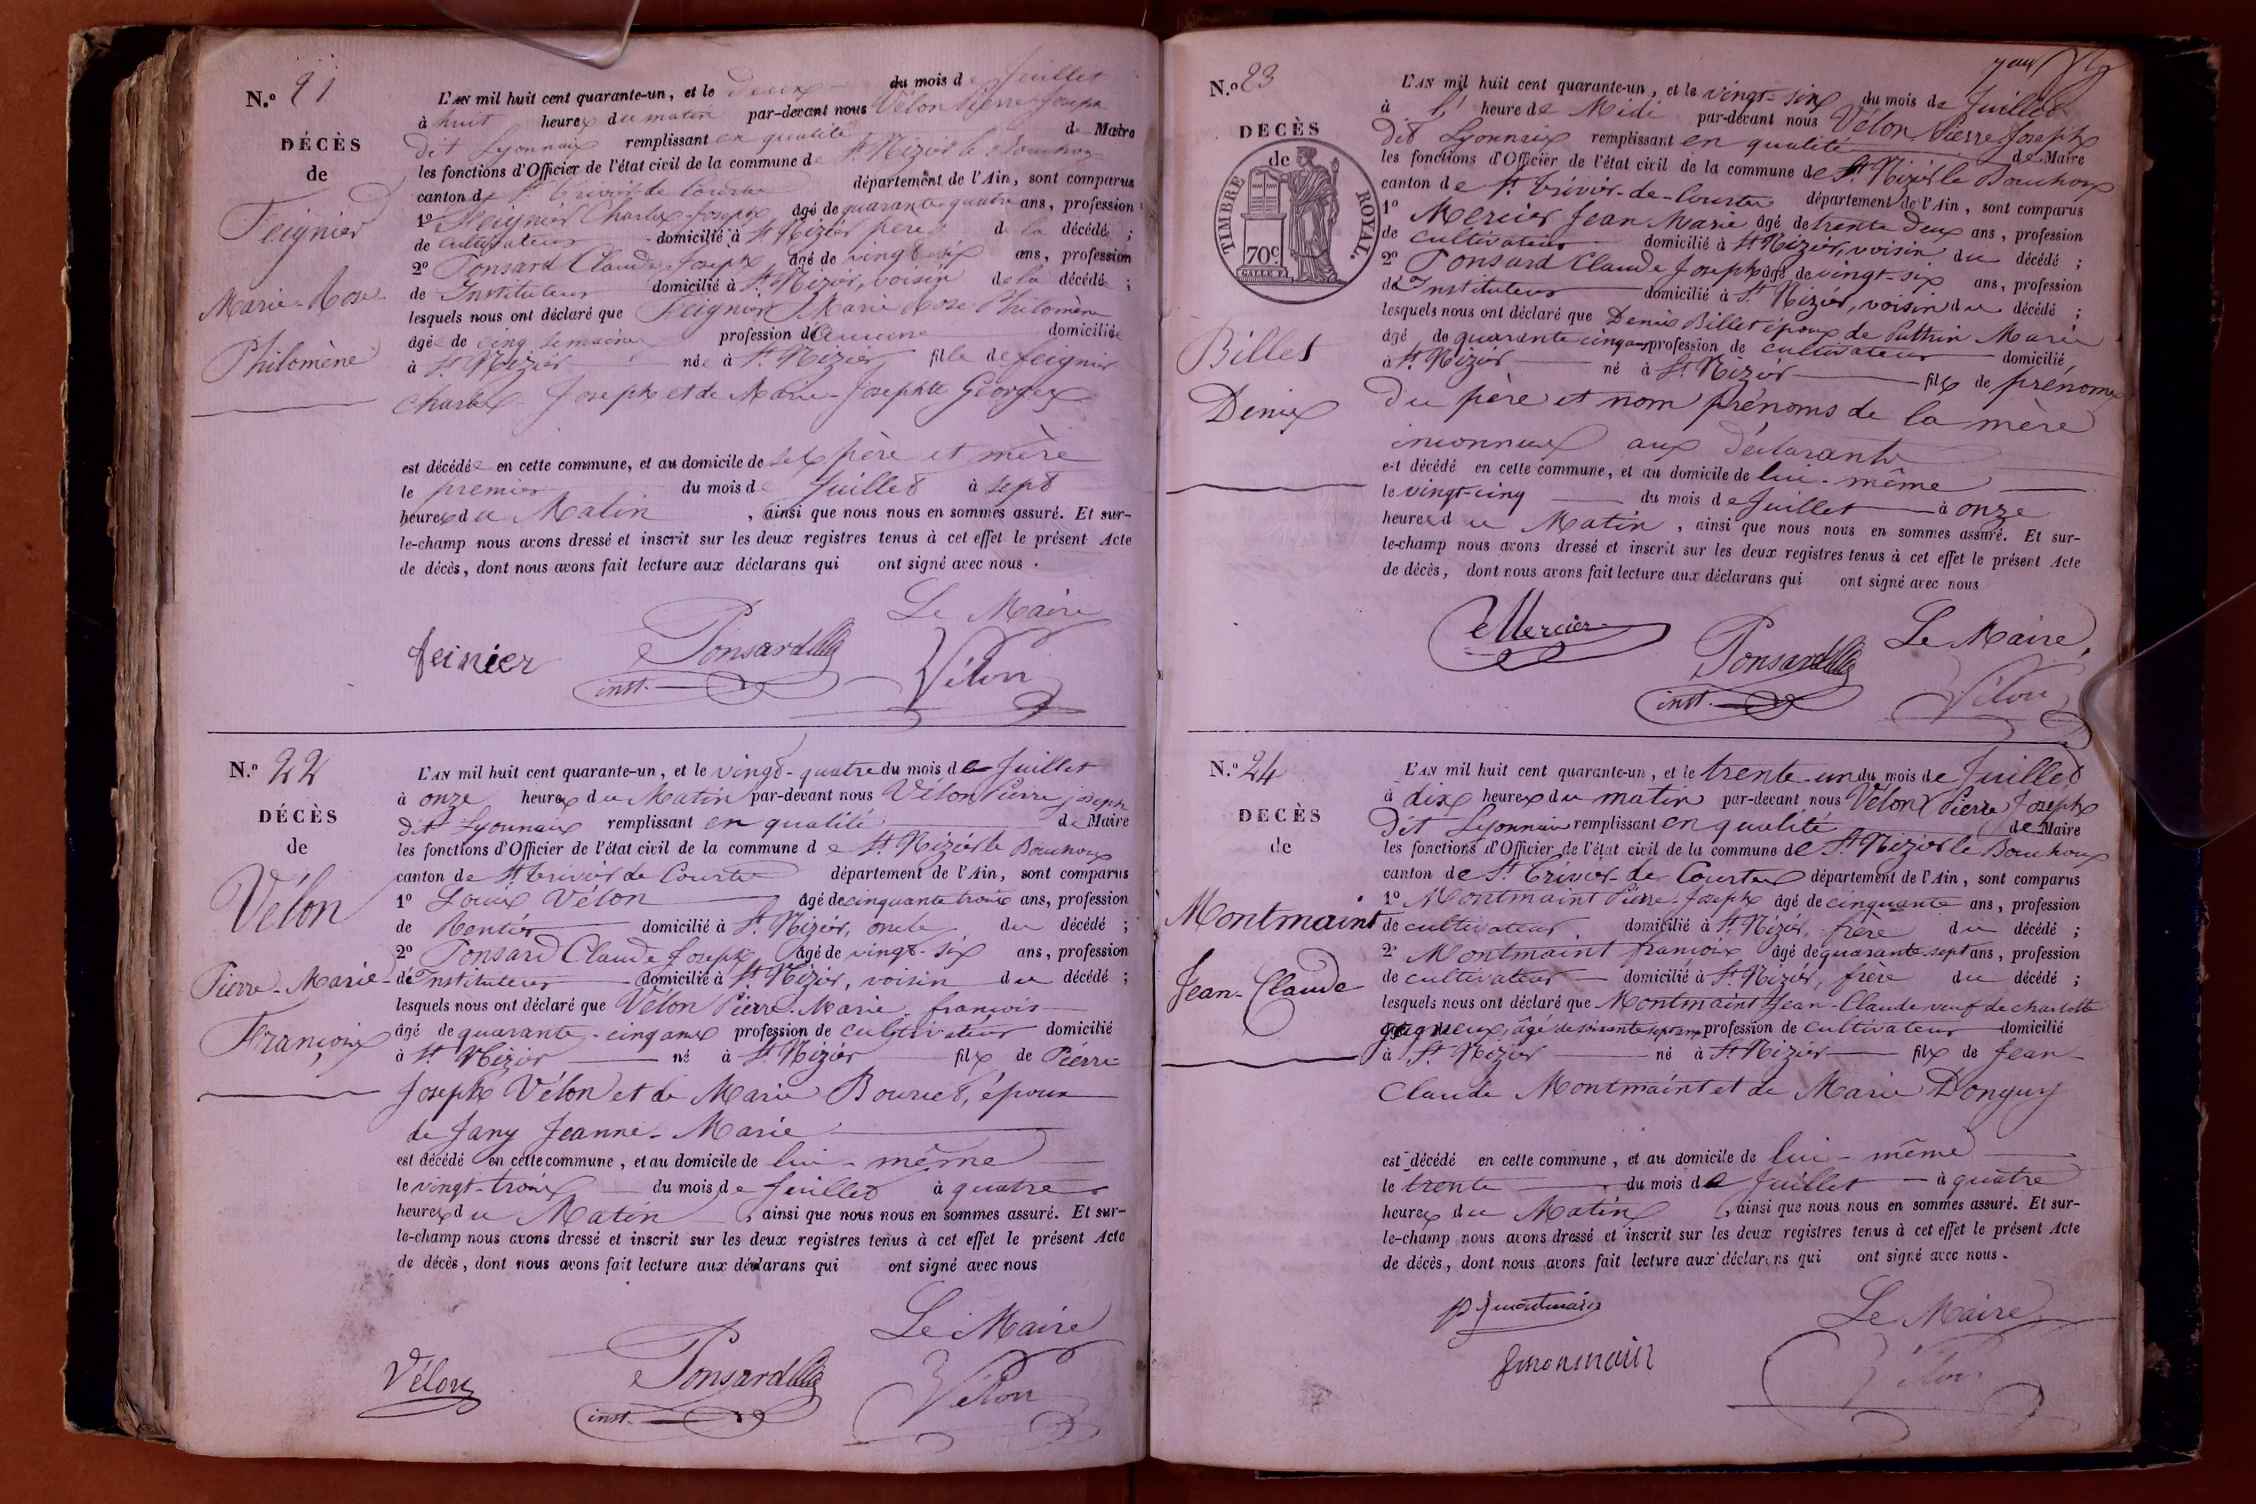 N.º 21
DÉCÈS
de
Feignier
Marie-Rose
Philomène
L'AN mil huit cent quarante-un, et le deux du mois de Juillet
à huit heures du matin par-devant nous Vélon Pierre Joseph
dit Lyonnais remplissant en qualité de Maire
les fonctions d'Officier de l'état civil de la commune de St. Nizier le Bouchoux
canton de St. Trivier de Courtes département de l'Ain, sont comparus
1º Feignier Charles Joseph âgé de quarante quatre ans, profession
de cultivateur domicilié à St Nizier père de la décédée ;
2º Ponsard Claude Joseph âgé de vingt six ans, profession
de Instituteur domicilié à St. Nizier, voisin de la décédée ;
lesquels nous ont déclaré que Feignier Marie Rose Philomène
âgée de cinq semaines profession d'aucune domiciliée
à St. Nizier née à St. Nizier fille de feignier
Charles Joseph et de Marie-Josephte Georges
est décédée en cette commune, et au domicile de ses père et mère
le premier du mois de Juillet à sept
heures du Matin, ainsi que nous nous en sommes assuré. Et sur-
le-champ nous avons dressé et inscrit sur les deux registres tenus à cet effet le présent Acte
de décès, dont nous avons fait lecture aux déclarans qui ont signé avec nous.
Le Maire
feinier Ponsard
inst. Vélon
N.º 22
DÉCÈS
de
Vélon
Pierre-Marie-
François
L'AN mil huit cent quarante-un, et le vingt-quatre du mois de Juillet
à onze heures du Matin par-devant nous Vélon Pierre joseph
dit Lyonnais remplissant en qualité de Maire
les fonctions d'Officier de l'état civil de la commune de St. Nizier le Bouchoux
canton de St trivier de Courtes département de l'Ain, sont comparus
1º Louis Vélon âgé de cinquante trois ans, profession
de Rentier domicilié à St. Nizier, oncle du décédé ;
2º Ponsard Claude Joseph âgé de vingt-six ans, profession
de Instituteur domicilié à St. Nizier, voisin du décédé ;
lesquels nous ont déclaré que Vélon Pierre-Marie-françois
âgé de quarante-cinq ans profession de cultivateur domicilié
à St. Nizier né à St. Nizier fils de Pierre
Joseph Vélon et de Marie Bourcet, époux
de Jany Jeanne-Marie
est décédé en cette commune, et au domicile de lui-même
le vingt-trois du mois de Juillet à quatre
heures du Matin, ainsi que nous nous en sommes assuré. Et sur-
le-champ nous avons dressé et inscrit sur les deux registres tenus à cet effet le présent Acte
de décès, dont nous avons fait lecture aux déclarans qui ont signé avec nous
Le Maire
Vélon Ponsard
inst. Vélon
N.º 23
DECÈS
de
TIMBRE ROYAL.
70c.
Billet
Denis
L'AN mil huit cent quarante-un, et le vingt-six du mois de Juillet
à l' heure de Midi par-devant nous Vélon Pierre Joseph
dit Lyonnais remplissant en qualité de Maire
les fonctions d'Officier de l'état civil de la commune de St. Nizier le Bouchoux
canton de St. trivier-de-Courtes département de l'Ain, sont comparus
1º Mercier Jean Marie âgé de trente deux ans, profession
de cultivateur domicilié à St Nizier, voisin du décédé ;
2º Ponsard Claude Joseph âgé de vingt-six ans, profession
de Instituteur domicilié à St. Nizier, voisin du décédé ;
lesquels nous ont déclaré que Denis Billet époux de Puthin Marie
âgé de quarante cinq ans profession de cultivateur domicilié,
à St. Nizier né à St Nizier fils de prénoms
du père et nom prénoms de la mère
inconnus aux déclarants
est décédé en cette commune, et au domicile de lui-même
le vingt-cinq du mois de Juillet à onze
heures du Matin, ainsi que nous nous en sommes assuré. Et sur-
le-champ nous avons dressé et inscrit sur les deux registres tenus à cet effet le présent Acte
de décès, dont nous avons fait lecture aux déclarans qui ont signé avec nous
Mercier Ponsard Le Maire,
inst. Vélon
N.º 24
DECÈS
de
Montmaint
Jean-Claude
L'AN mil huit cent quarante-un, et le trente-un du mois de Juillet
à dix heures du matin par-devant nous Vélon Pierre Joseph
dit Lyonnais remplissant en qualité de Maire
les fonctions d'Officier de l'état civil de la commune de St Nizier le Bouchoux
canton de St. Trivier-de-Courtes département de l'Ain, sont comparus
1º Montmaint Pierre-Joseph âgé de cinquante ans, profession
de cultivateur, domicilié à St. Nizier, frère du décédé ;
2º Montmaint françois âgé de quarante sept ans, profession
de cultivateur domicilié à St Nizier, frère du décédé ;
lesquels nous ont déclaré que Montmaint Jean-Claude veuf de charlotte
gagneux, âgé de soixante sept ans profession de cultivateur domicilié
à St. Nizier né à St Nizier fils de Jean-
Claude Montmaint et de Marie Donguy
est décédé en cette commune, et au domicile de lui-même
le trente du mois de Juillet à quatre
heures du Matin, ainsi que nous nous en sommes assuré. Et sur-
le-champ nous avons dressé et inscrit sur les deux registres tenus à cet effet le présent Acte
de décès, dont nous avons fait lecture aux déclarans qui ont signé avec nous.
Le Maire
Vélon